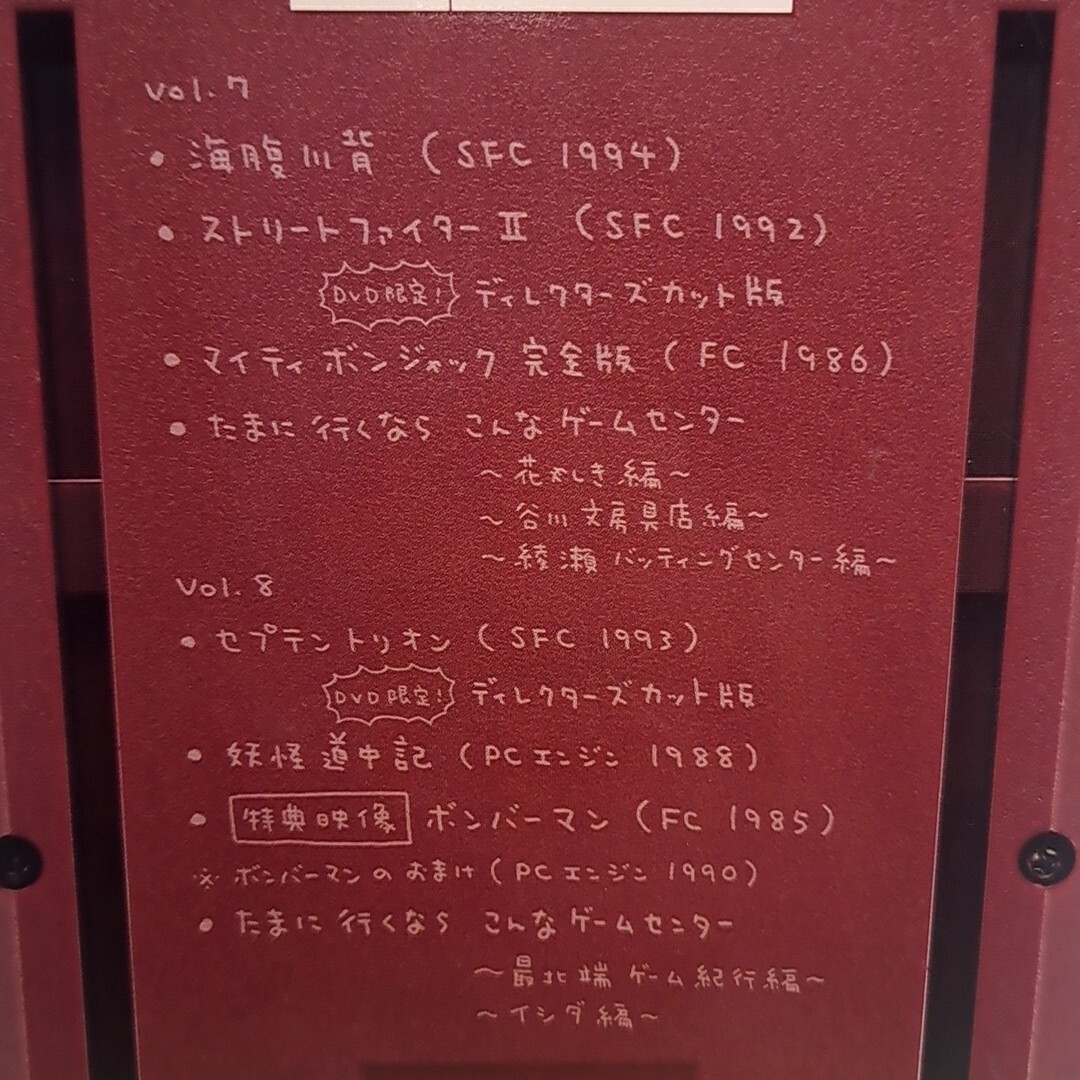 vol.7
• 海腹川背 (SFC 1994)
• ストリートファイターⅡ (SFC 1992)
DVD限定! ディレクターズカット版
• マイティボンジャック 完全版 (FC 1986)
• たまに行くなら こんなゲームセンター
～花やしき編～
～谷川文房具店編～
～綾瀬バッティングセンター編～
Vol.8
• セプテントリオン (SFC 1993)
DVD限定! ディレクターズカット版
• 妖怪道中記 (PCエンジン 1988)
• 特典映像 ボンバーマン (FC 1985)
※ボンバーマンのおまけ (PCエンジン 1990)
• たまに行くなら こんなゲームセンター
～最北端ゲーム紀行編～
～イシダ編～